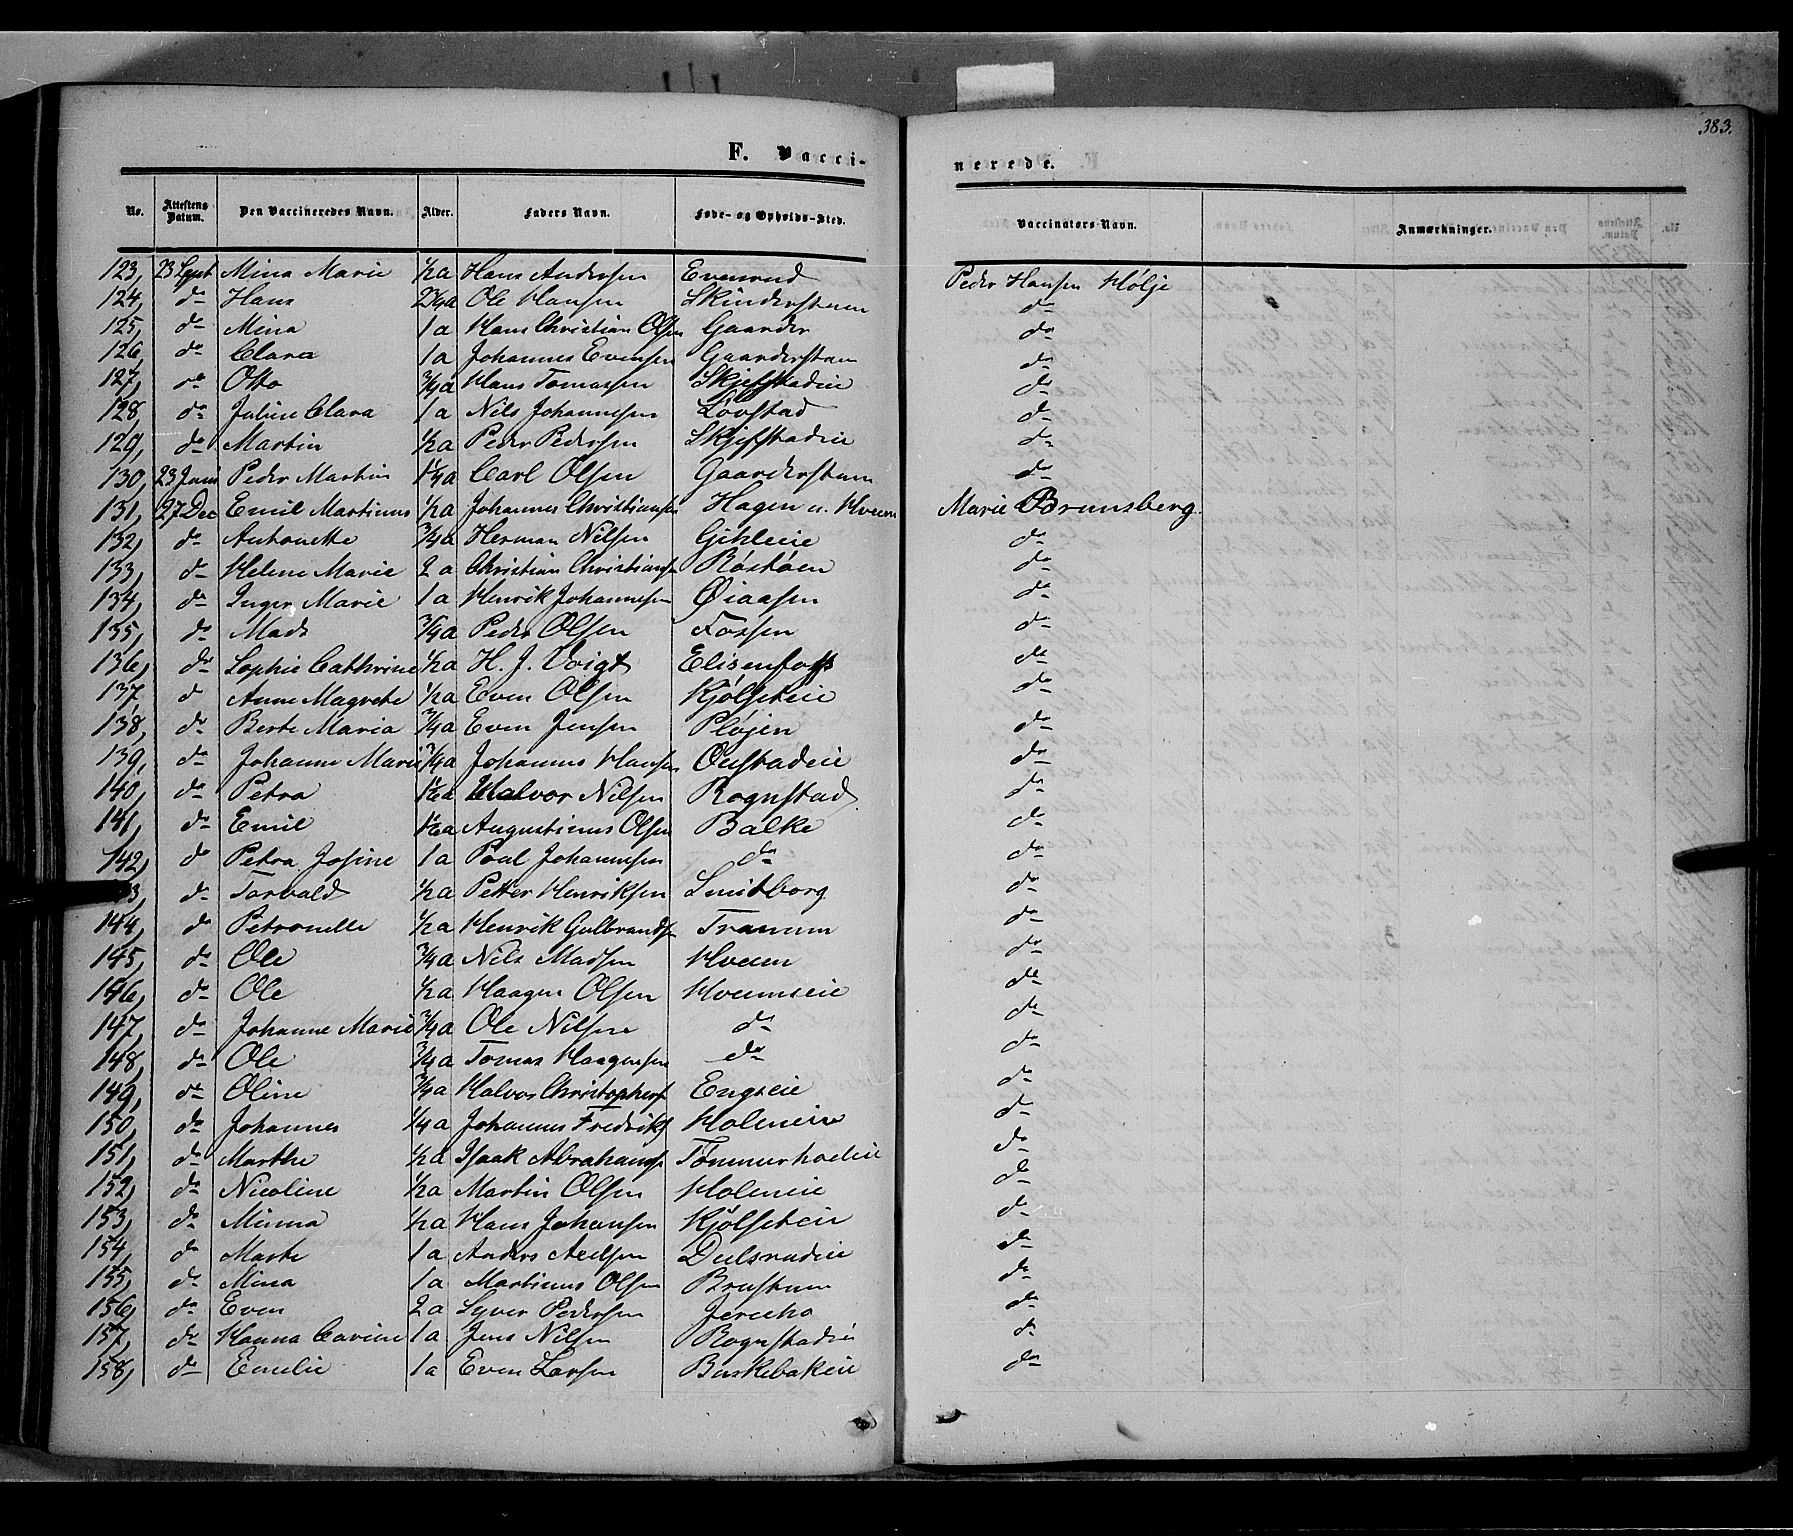 383.
F. Vacci-
nerede.
No. Attestens Datum. Den Vaccineredes Navn. Alder. Faders Navn. Føde- og Opholds-Sted. Vaccinators Navn. Anmærkninger.
123, 23 Sept Mina Marie 1/2 a Hans Andersen Evenrud Peder Hansen Hølje
124, do Hans 2 1/4 a Ole Hansen Skinderstuen do
125, do Mina 1 a Hans Christian Olsen Gaarder do
126, do Clara 1 a Johannes Evensen Gaarderstuen do
127, do Otto 3/4 a Hans Tomassen Skjefstadeie do
128, do Juline Clara 1 a Nils Johannesen Lövstad do
129, do Martin 1/2 a Peder Pedersen Skjefstadeie do
130, 23 Juni Peder Martin 1 1/4 a Carl Olsen Gaarderstuen do
131, 27 Dec Emil Martinus 1/2 a Johannes Christiansen Hagen u. Hveem Marie Brunsberg.
132, do Antonette 3/4 a Herman Nilsen Gihleeie do
133, do Helene Marie 2 a Christian Christiansen Røstøen do
134, do Inger Marie 1 a Henrik Johannesen Øiaasen do
135, do Mads 3/4 a Peder Olsen Fossen do
136, do Sophie Cathrine 1/2 a H. J. Voigt Elisenfoss do
137, d Anne Magrete 1/2 a Even Olsen Kjølseteie do
138, do Berte Maria 3/4 a Even Jensen Pløjen do
139, do Johanne Marie 3/4 a Johannes Hansen Onstadeie do
140, do Petra 1 1/2 a Halvor Nilsen Rognstad do
141, do Emil 1 1/2 a Augustinus Olsen Balke do
142, do Petra Josine 1 a Poul Johannesen do do
3, do Torvald 1/2 a Petter Henriksen Smitborg do
144, do Petronelle 1/2 a Henrik Gulbrands Tranum do
145, do Ole 3/4 a Nils Madsen Hveem do
146, do Ole 1/2 a Haagen Olsen Hveemseie do
147, do Johanne Marie 3/4 a Ole Nilsen do do
148, do Ole 3/4 a Tomas Haagensen do do
149, do Oline 3/4 a Halvor Christophers Engseie do
150, do Johannes 1/4 a Johannes Fredriks Holmeie do
151, do Marthe 1/2 a Isaak Abrahams Tømmerholeie do
152, do Nicoline 1/2 a Martin Olsen Holmeie do
153, do Minna 1/2 a Hans Johansen Kjølseteie do
154, do Marte 1 a Anders Nilsen Dulsrudeie do
155, do Mina 1 a Martinus Olsen Brustuen do
156, do Even 2 a Syver Pedersen Jericho do
157, do Hanna Carine 1 a Jens Nilsen Rognstadeie do
158, do Emelie 1 a Even Larsen Buskebakeie do